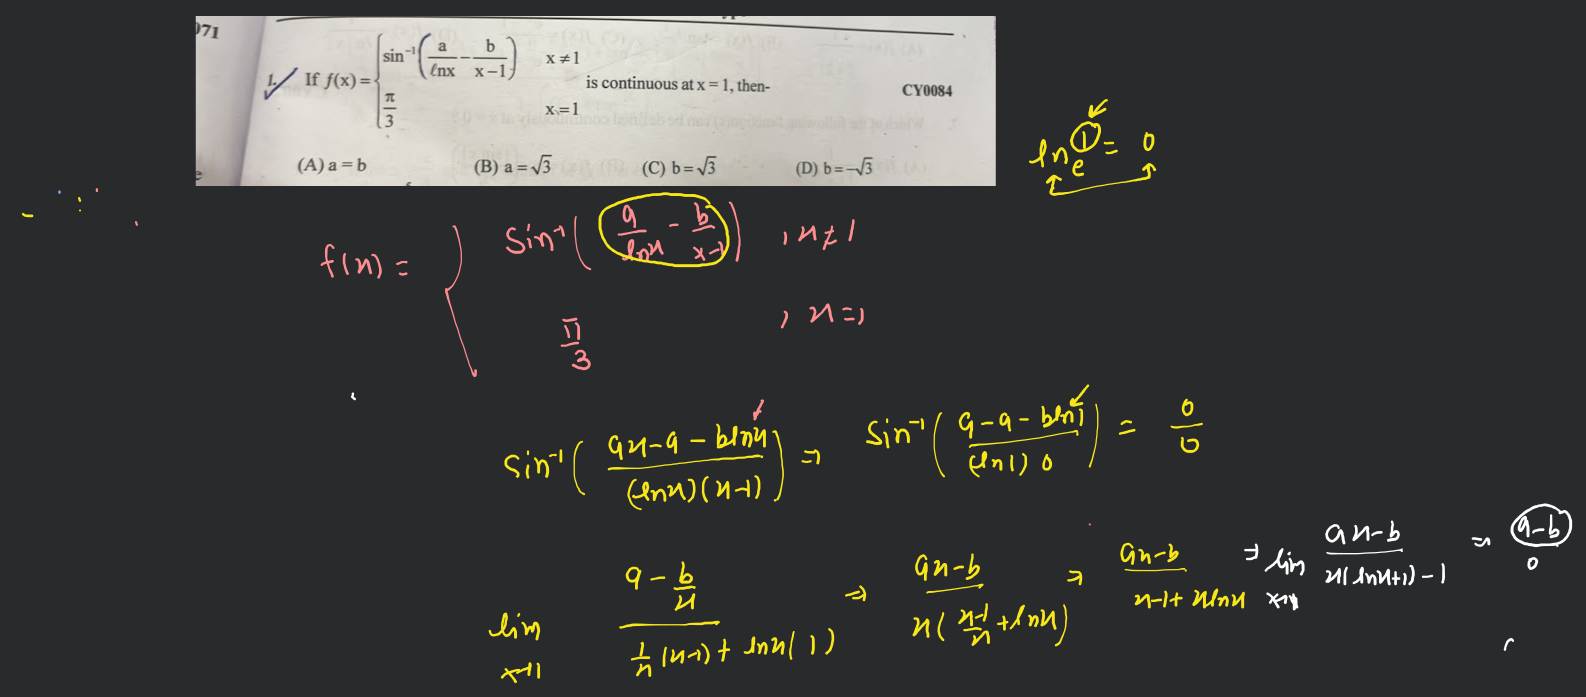 071
1. If f(x) = { sin⁻¹(a/ℓnx - b/x-1) x ≠ 1
π/3 x = 1
is continuous at x = 1, then-
CY0084
(A) a = b (B) a = √3 (C) b = √3 (D) b = -√3
ln e 1 = 0
f(x) = { sin⁻¹(a/lnx - b/x-1) , x ≠ 1
π/3 , x = 1
sin⁻¹(ax-a-blnx/(lnx)(x-1)) ⇒ sin⁻¹(a-a-bln1/(ln1) 0) = 0/0
lim x→1 a - b/x / 1/x (x-1) + lnx(1) ⇒ ax-b / x(x-1/x + lnx) ⇒ ax-b / x-1+xlnx ⇒ lim x→1 ax-b / x(lnx+1)-1 = a-b / 0